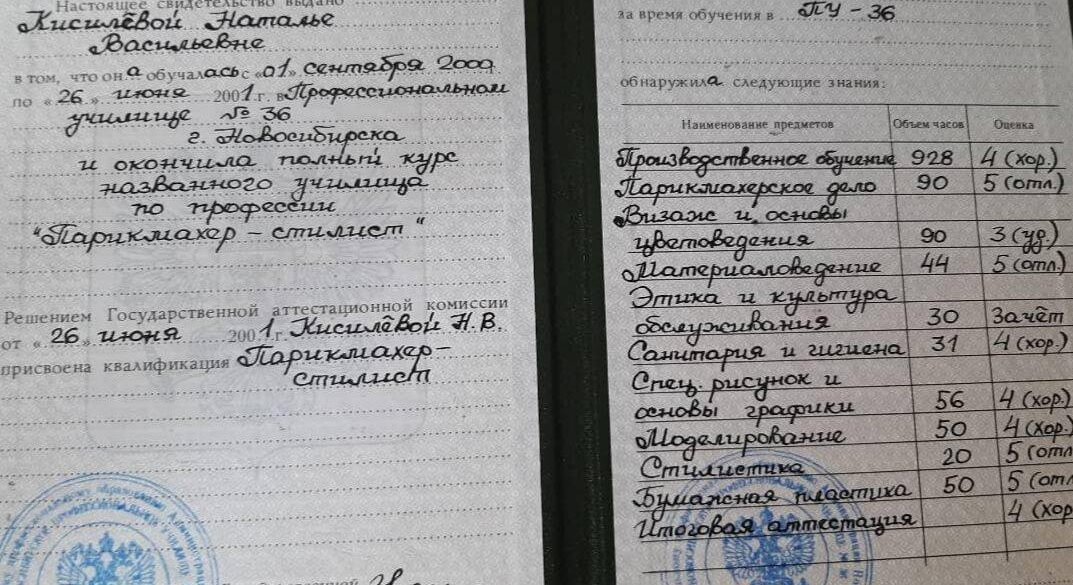 Настоящее свидетельство выдано
Кисилёвой Наталье
Васильевне
в том, что она обучалась с «01» сентября 2000
по «26» июня 2001 г. в Профессиональном
училище № 36
г. Новосибирска
и окончила полный курс
названного училища
по профессии
"Парикмахер - стилист"
Решением Государственной аттестационной комиссии
от «26» июня 2001 г. Кисилёвой Н.В.
присвоена квалификация Парикмахер-
стилист
за время обучения в ПУ - 36
обнаружила следующие знания:
Наименование предметов Объем часов Оценка
Производственное обучение 928 4 (хор.)
Парикмахерское дело 90 5 (отл.)
Визаж и основы
цветоведения 90 3 (уд.)
Материаловедение 44 5 (отл.)
Этика и культура
обслуживания 30 Зачёт
Санитария и гигиена 31 4 (хор.)
Спец. рисунок и
основы графики 56 4 (хор.)
Моделирование 50 4 (хор.)
Стилистика 20 5 (отл
Бумажная пластика 50 5 (отл
Итоговая аттестация 4 (хор